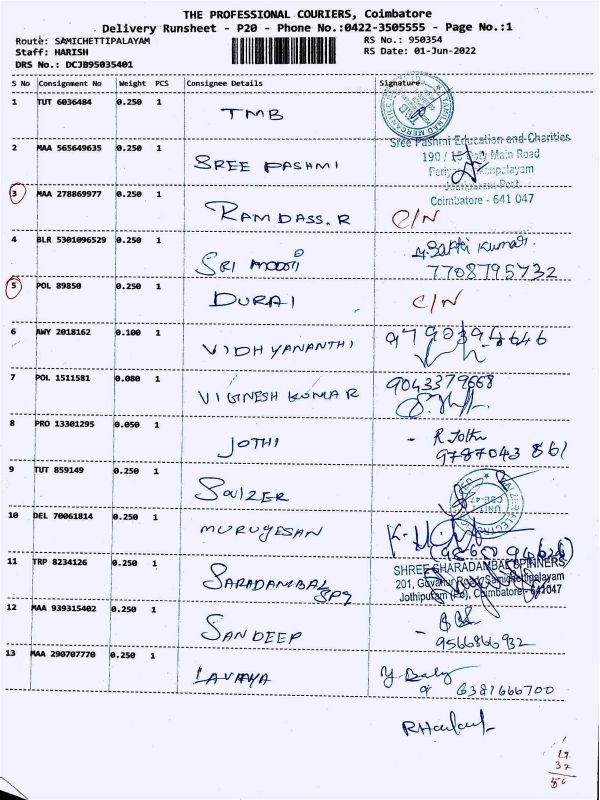 THE PROFESSIONAL COURIERS, Coimbatore
Delivery Runsheet - P20 - Phone No.:0422-3505555 - Page No.:1
Route: SAMICHETTIPALAYAM
Staff: HARISH
DRS No.: DCJB95035401
RS No.: 950354
RS Date: 01-Jun-2022
S No Consignment No Weight PCS Consignee Details Signature
1 TUT 6036484 0.250 1 TMB
2 MAA 565649635 0.250 1 SREE PASHMI
Sree Pashmi Education and Charities
190 / Main Road
Coimbatore - 641 047
3 MAA 278869977 0.250 1 RAMDASS.R C/N
4 BLR 5301096529 0.250 1 SRI MOOJI
Sakthi Kumar.
7708795732
5 POL 89850 0.250 1 DURAI C/N
6 AWY 2018162 0.100 1 VIDHYANANTHI
7 POL 1511581 0.080 1 VIGINESH KUMAR 9043379668
8 PRO 13301295 0.050 1 JOTHI - R. Jothi
9787043 861
9 TUT 859149 0.250 1 SOULZER
10 DEL 70061814 0.250 1 MURUGESAN
11 TRP 8234126 0.250 1 SARADAMBAL
SPG
SHREE SHARADAMBAL SPINNERS
201, Govanur Road, Samichettipalayam
Jothipuram (Po), Coimbatore - 641047
12 MAA 939315402 0.250 1 SANDEEP
9566866932
13 MAA 290707770 0.250 1 LAVANYA
6381666700